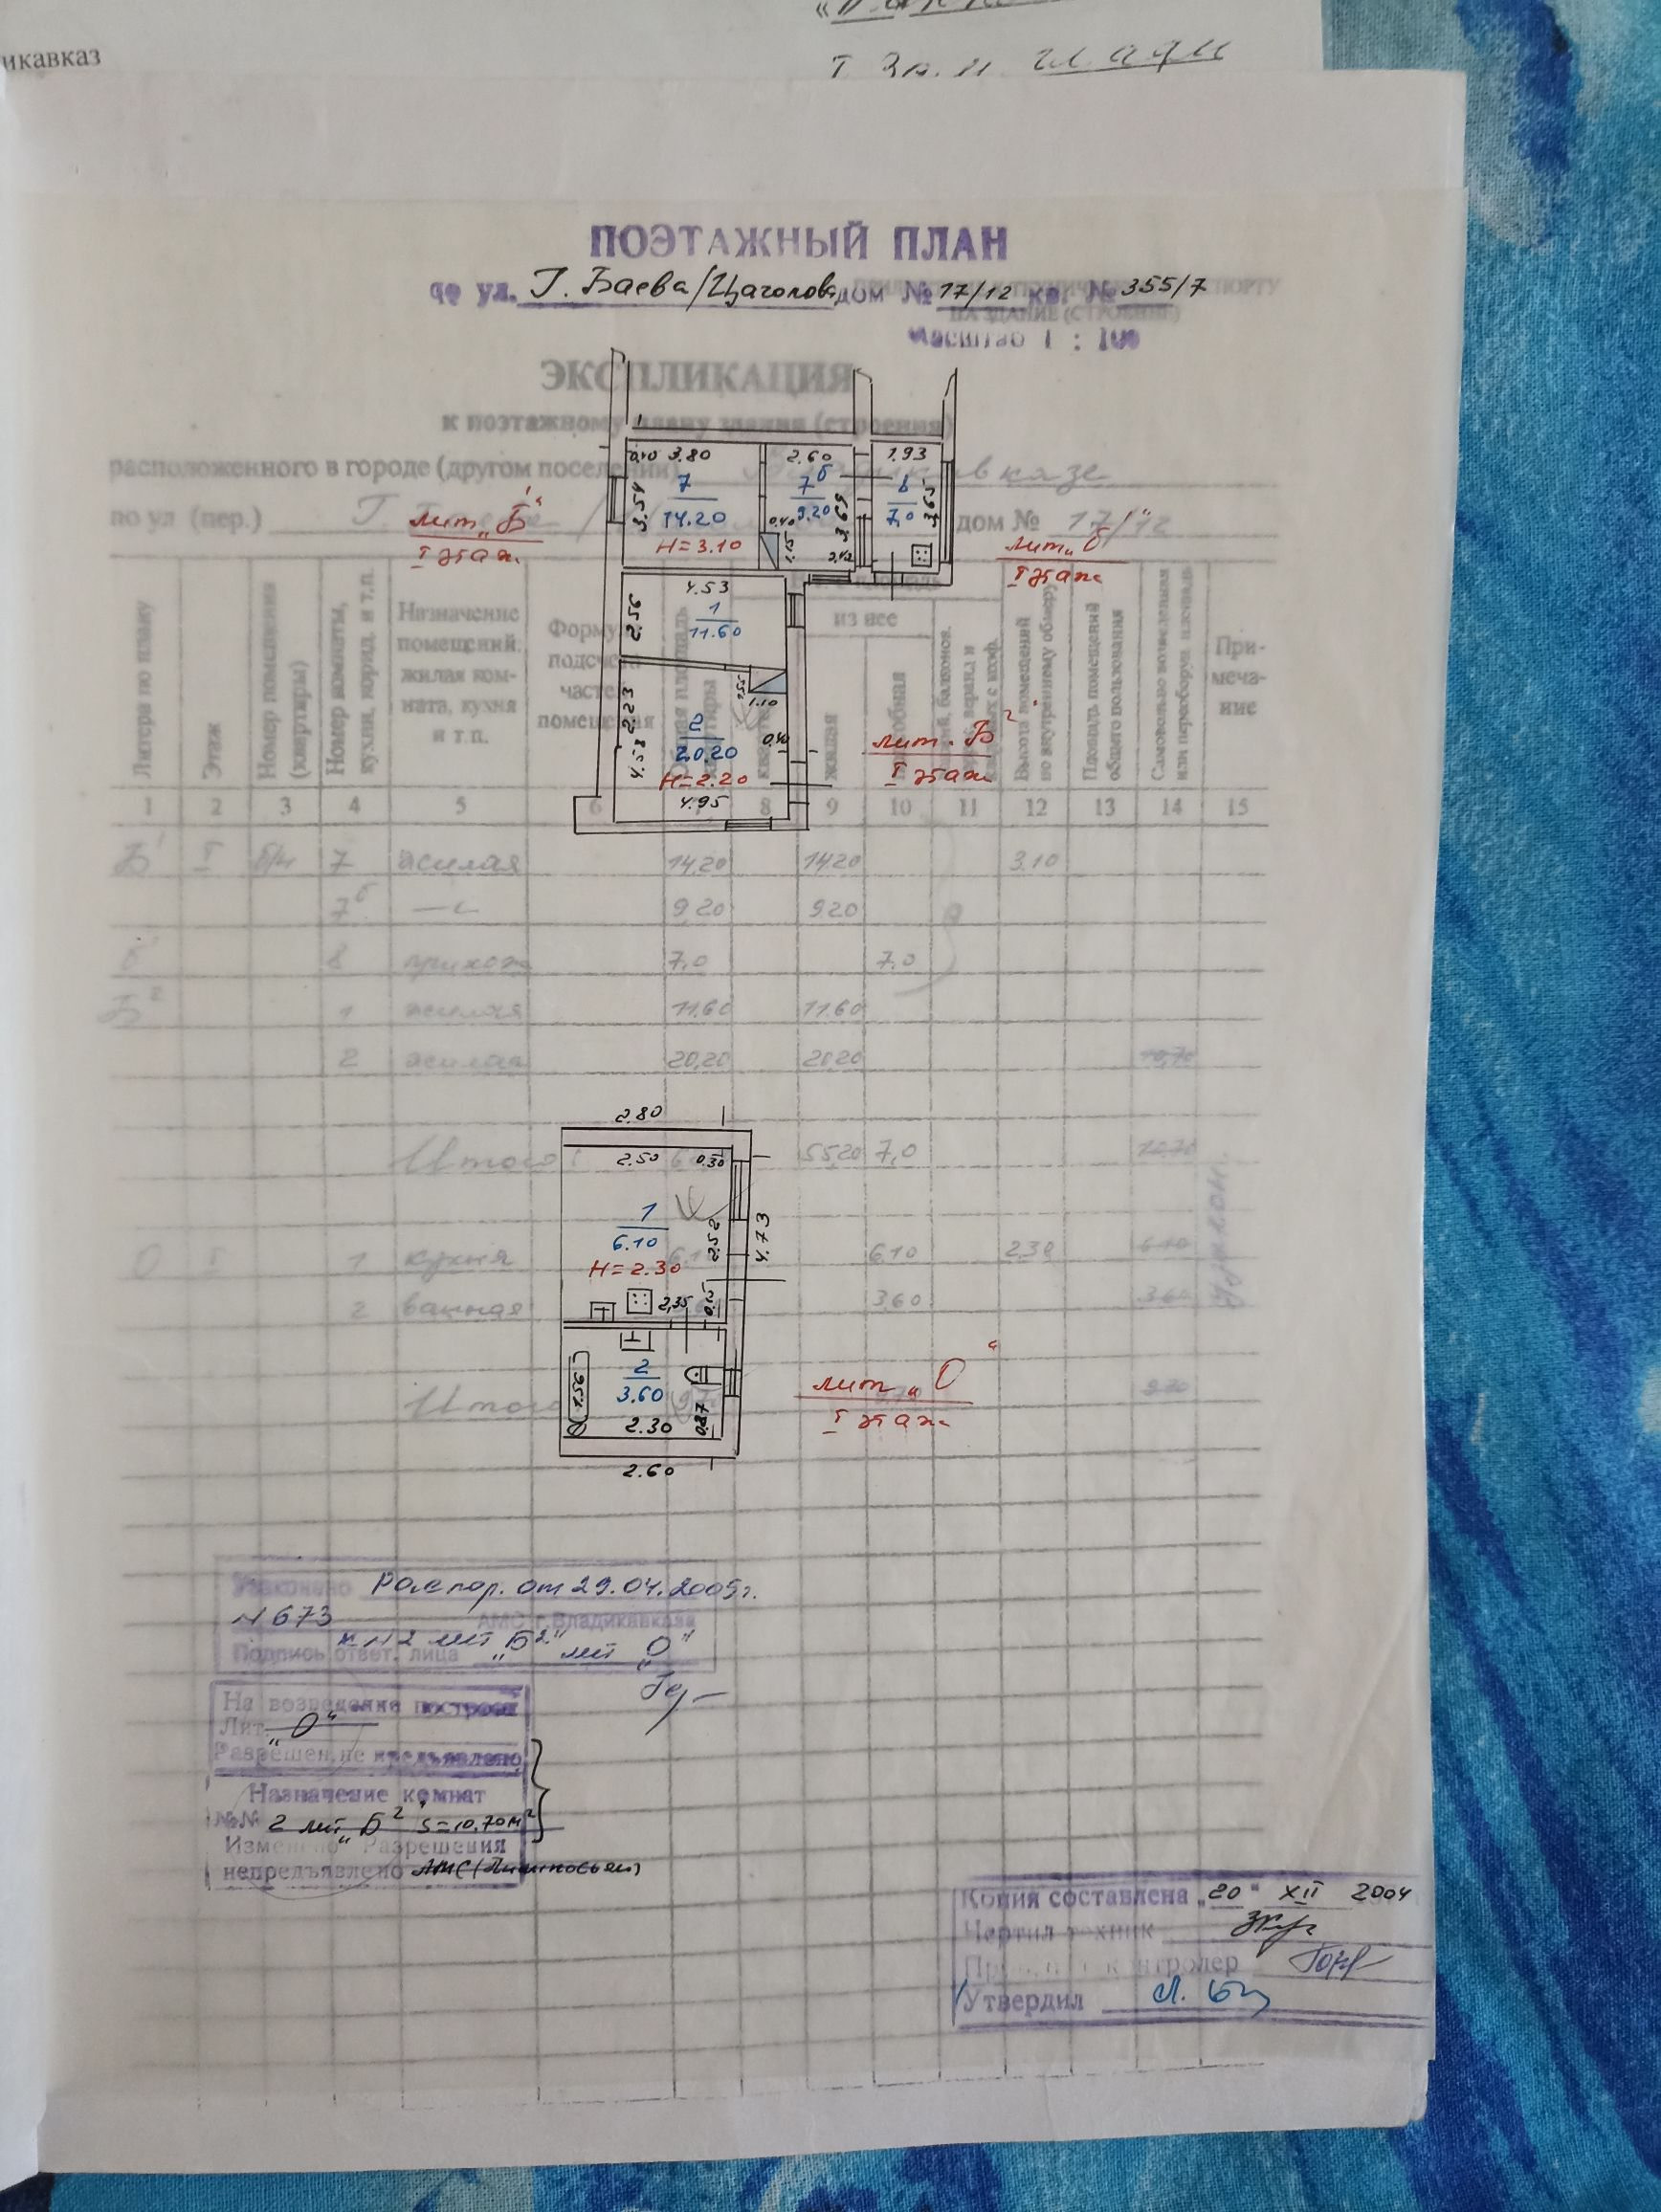 икавказ
ПОЭТАЖНЫЙ ПЛАН
по ул. Г. Баева/Цаголова дом № 17/12 кв. № 355/7
НА ЗДАНИЕ (СТРОЕНИЕ)
Масштаб 1 : 100
ЭКСПЛИКАЦИЯ
к поэтажному плану здания (строения)
расположенного в городе (другом поселении)
по ул (пер.) дом № 17/12
0.40 3.80 2.60 1.93
3.54 7 14.20 7б 9.20 3.65 8 7,0 3.65
H=3.10
лит. „Б'“
I этаж
лит. „б“
I этаж
4.53
2.56 1 11.60
2.23
1.10
2 20.20
4.58
H=2.20
4.95
лит. „Б²“
I этаж
Литера по плану
Этаж
Номер помещения (квартиры)
Номер комнаты, кухни, корид. и т.п.
Назначение помещений: жилая комната, кухня и т.п.
из нее
жилая
Высота помещений по внутреннему обмеру
Площадь помещений общего пользования
Самовольно возведенная или переоборуд. площадь
Примечание
1 2 3 4 5 6 8 9 10 11 12 13 14 15
Б' I б/н 7 жилая 14,20 14.20 3.10
7б 9,20 9.20
8 прихож 7,0 7,0
Б² 1 жилая 11.60 11.60
2 жилая 20,20 20.20 10,70
Итого: 55.20 7,0 10.70
О I 1 кухня 6.10 2.30 6.10
2 ванная 3.60 3.60
Итого 9.70
2.80
2.50 0.30
1 6.10
2.52 4.73
H=2.30
2,35
2 3.60
1.56
2.30 0.87
2.60
лит „О“
I этаж
Узаконено Распор. от 29.04.2005г.
N 673 АМС г. Владикавказа
к N2 лит „Б²“ лит „О“
Подпись ответ. лица
На возведение построек
Лит. „О“
Разрешение не предъявлено
Назначение комнат
№№ 2 лит „Б²“ S=10,70м²
Изменено Разрешения
непредъявлено АМС
Копия составлена „20“ XII 2004
Чертил техник
Утвердил